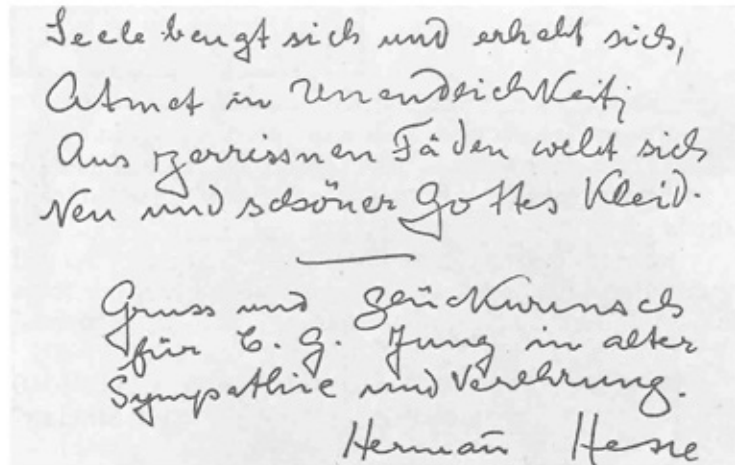 Seele beugt sich und erhebt sich,
Atmet in Unendlichkeit;
Aus zerrissnen Fäden webt sich
Neu und schöner Gottes Kleid.
Gruss und Glückwunsch
für C. G. Jung in alter
Sympathie und Verehrung.
Hermann Hesse